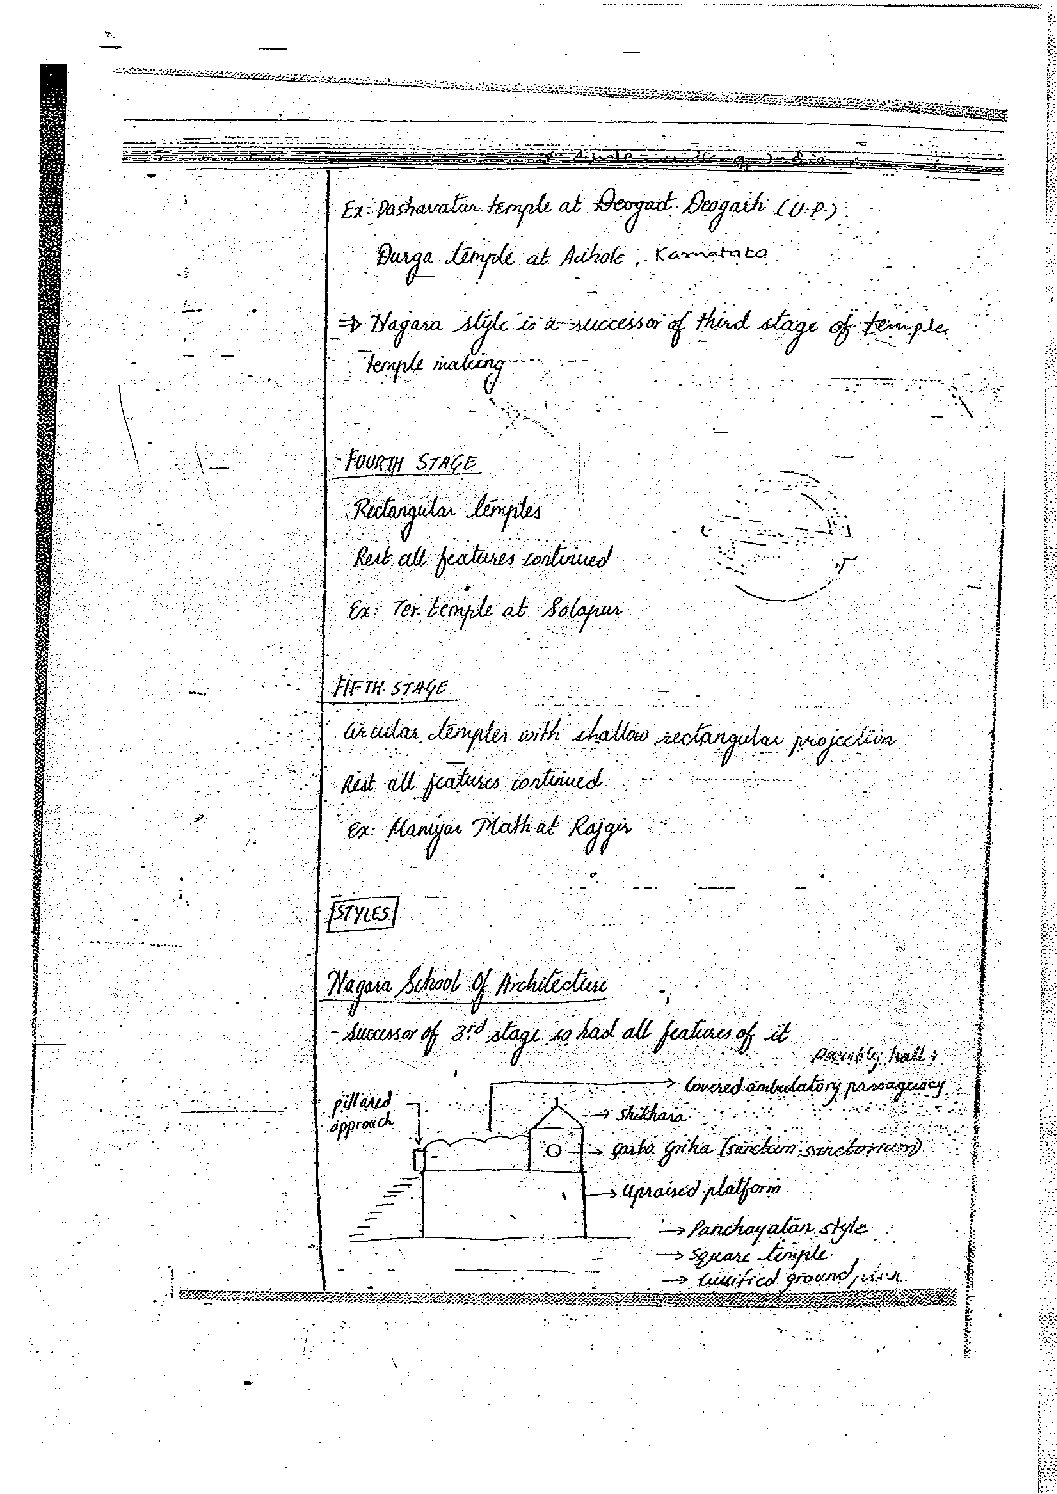 Ex: Dashavatar temple at Deogad Deogarh (U.P)
Durga temple at Aihole, Karnataka
⇒ Nagara style is a successor of third stage of temple
temple making
FOURTH STAGE
Rectangular temples
Rest all features continued
Ex: Ter temple at Solapur
FIFTH STAGE
Circular temples with shallow rectangular projection
Rest all features continued
Ex: Maniyar Math at Rajgir
STYLES
Nagara School Of Architecture
- Successor of 3rd stage so had all features of it
hall
→ Covered ambulatory
pillared
approach
→ Shikhara
→ Garba Griha (sanctum sanctorium)
→ Upraised platform
→ Panchayatan style
→ Square temple
→ Crucified ground plan